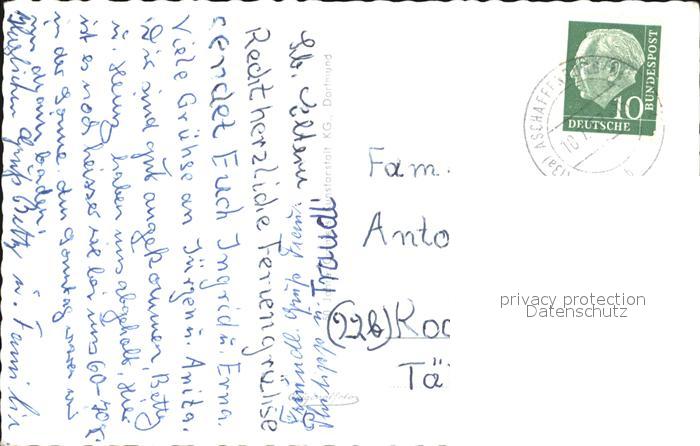 Lb. Eltern
Recht herzliche Feriengrüße
sendet Euch Ingrid u. Erna.
Viele Grühse an Jürgen u. Anita.
Wir sind gut angekommen, Betty
u. Heinz haben uns abgeholt, hier
ist es noch heisser wie bei uns 60-70%
in der Sonne. den Sonntag waren wir
zum baden.
Herzlichen Gruß Betty u.
Traudl
KG., Dortmund
Fam.
Anto
(22b) Koc
Tä
ASCHAFFEN
10
DEUTSCHE
BUNDESPOST
privacy protection
Datenschutz